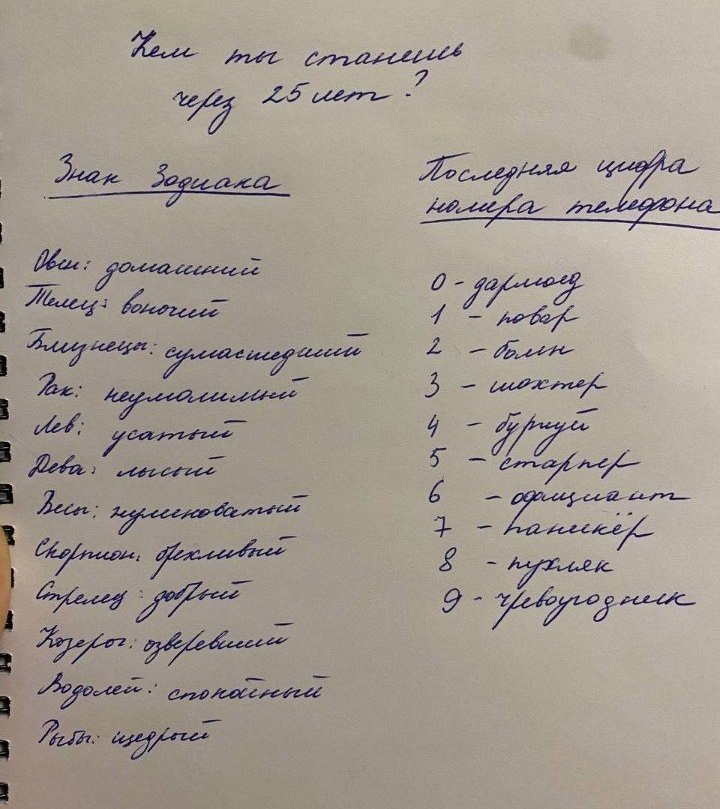 Кем ты станешь
через 25 лет?
Знак Зодиака
Овен: домашний
Телец: вонючий
Близнецы: сумасшедший
Рак: неумолимый
Лев: усатый
Дева: лысый
Весы: жуликоватый
Скорпион: брехливый
Стрелец: добрый
Козерог: озверевший
Водолей: спокойный
Рыбы: щедрый
Последняя цифра
номера телефона
0 - дармоед
1 - повар
2 - бомж
3 - шахтер
4 - буржуй
5 - старпер
6 - официант
7 - паникёр
8 - пухляк
9 - чревоугодник